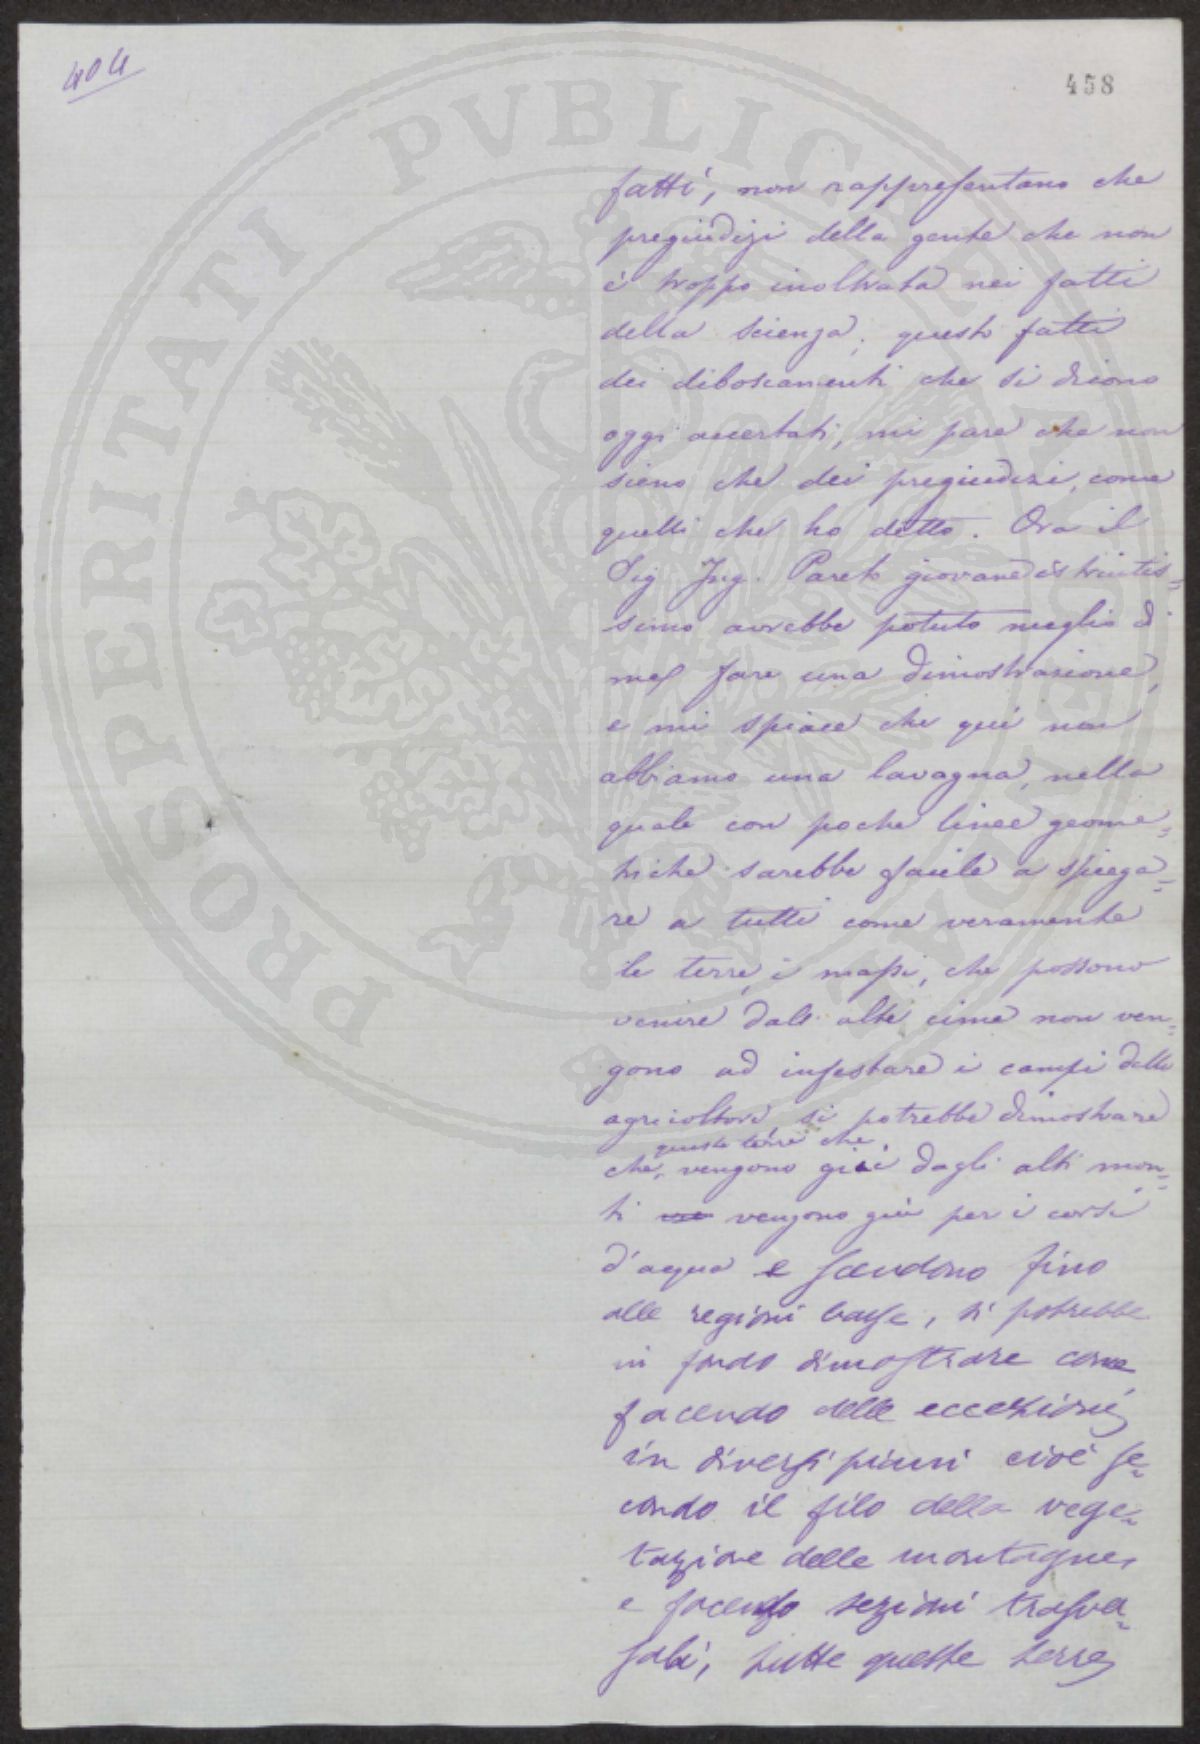 404
458
PVBLICAE
PROSPERITATI
fatti, non rappresentano che
pregiudizi della gente che non
è troppo inoltrata nei fatti
della scienza; questi fatti
dei diboscamenti che si dicono
oggi accertati, mi pare che non
sieno che dei pregiudizi, come
quelli che ho detto. Ora il
Sig Ing. Pareto giovane istruitis=
simo avrebbe potuto meglio di
me fare una dimostrazione,
e mi spiace che qui non
abbiamo una lavagna, nella
quale con poche linee geome=
triche sarebbe facile a spiega=
re a tutti come veramente
le terre, i massi, che possono
venire dall' alte cime non ven=
gono ad infestare i campi delle
agricoltori, si potrebbe dimostrare
queste terre che
che, vengono giù dagli alti mon=
ti vengono giù per i corsi
d'acqua e scendono fino
alle regioni basse, si potrebbe
in fondo dimostrare come
facendo delle eccezioni
in diversi piani cioè se=
condo il filo della vege=
tazione delle montagne,
e facendo sezioni trasver=
sali, tutte queste terre